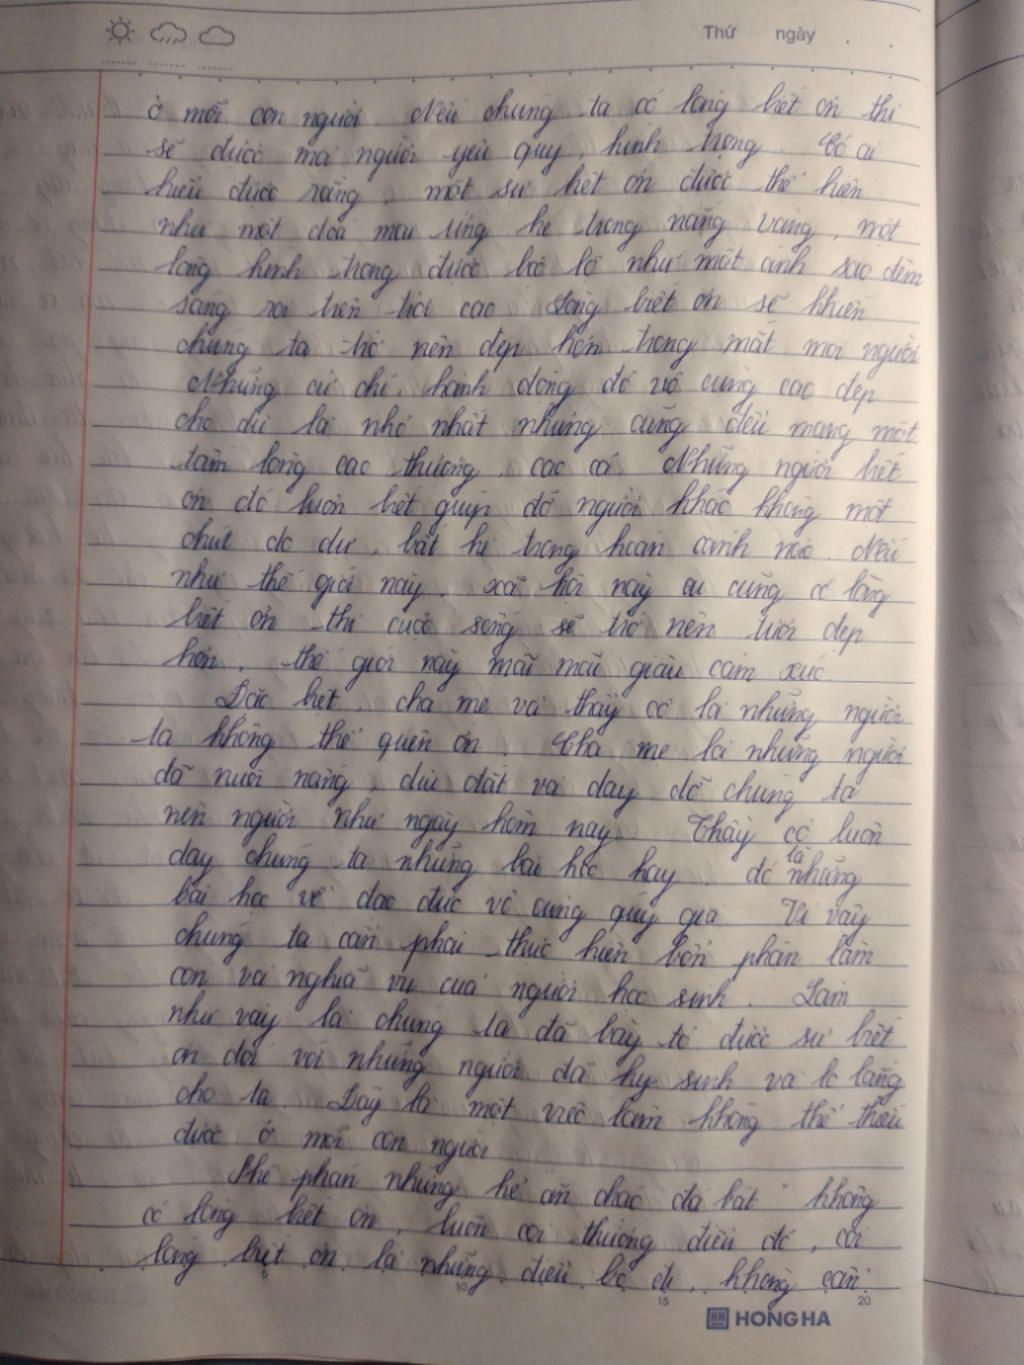 Thứ ngày
ở mỗi con người. Nếu chúng ta có lòng biết ơn thì
sẽ được mọi người yêu quý, kính trọng. Có ai
hiểu được rằng, một sự biết ơn được thể hiện
như một đóa mai ửng hé trong nắng vàng, một
lòng kính trọng được bộc lộ như một ánh sao đêm
sáng rọi trên trời cao. Lòng biết ơn sẽ khiến
chúng ta trở nên đẹp hơn trong mắt mọi người
Những cử chỉ, hành động đó vô cùng cao đẹp
cho dù là nhỏ nhặt nhưng cũng đều mang một
tấm lòng cao thượng, cao cả. Những người biết
ơn đó luôn biết giúp đỡ người khác không một
chút do dự, bất kì trong hoàn cảnh nào. Nếu
như thế giới này, xã hội này ai cũng có lòng
biết ơn thì cuộc sống sẽ trở nên tươi đẹp
hơn, thế giới này mãi mãi giàu cảm xúc.
Đặc biệt, cha mẹ và thầy cô là những người
ta không thể quên ơn. Cha mẹ là những người
đã nuôi nấng, dìu dắt và dạy dỗ chúng ta
nên người như ngày hôm nay. Thầy cô luôn
dạy chúng ta những bài học hay, đó là những
bài học về đạo đức vô cùng quý giá. Vì vậy
chúng ta cần phải thực hiện bổn phận làm
con và nghĩa vụ của người học sinh. Làm
như vậy là chúng ta đã bày tỏ được sự biết
ơn đối với những người đã hy sinh và lo lắng
cho ta. Đây là một việc làm không thể thiếu
được ở mỗi con người
Phê phán những kẻ ăn cháo đá bát không
có lòng biết ơn, luôn coi thường điều đó, coi
lòng biết ơn là những điều bỏ đi, không cần
10 15 20
HH HONG HA